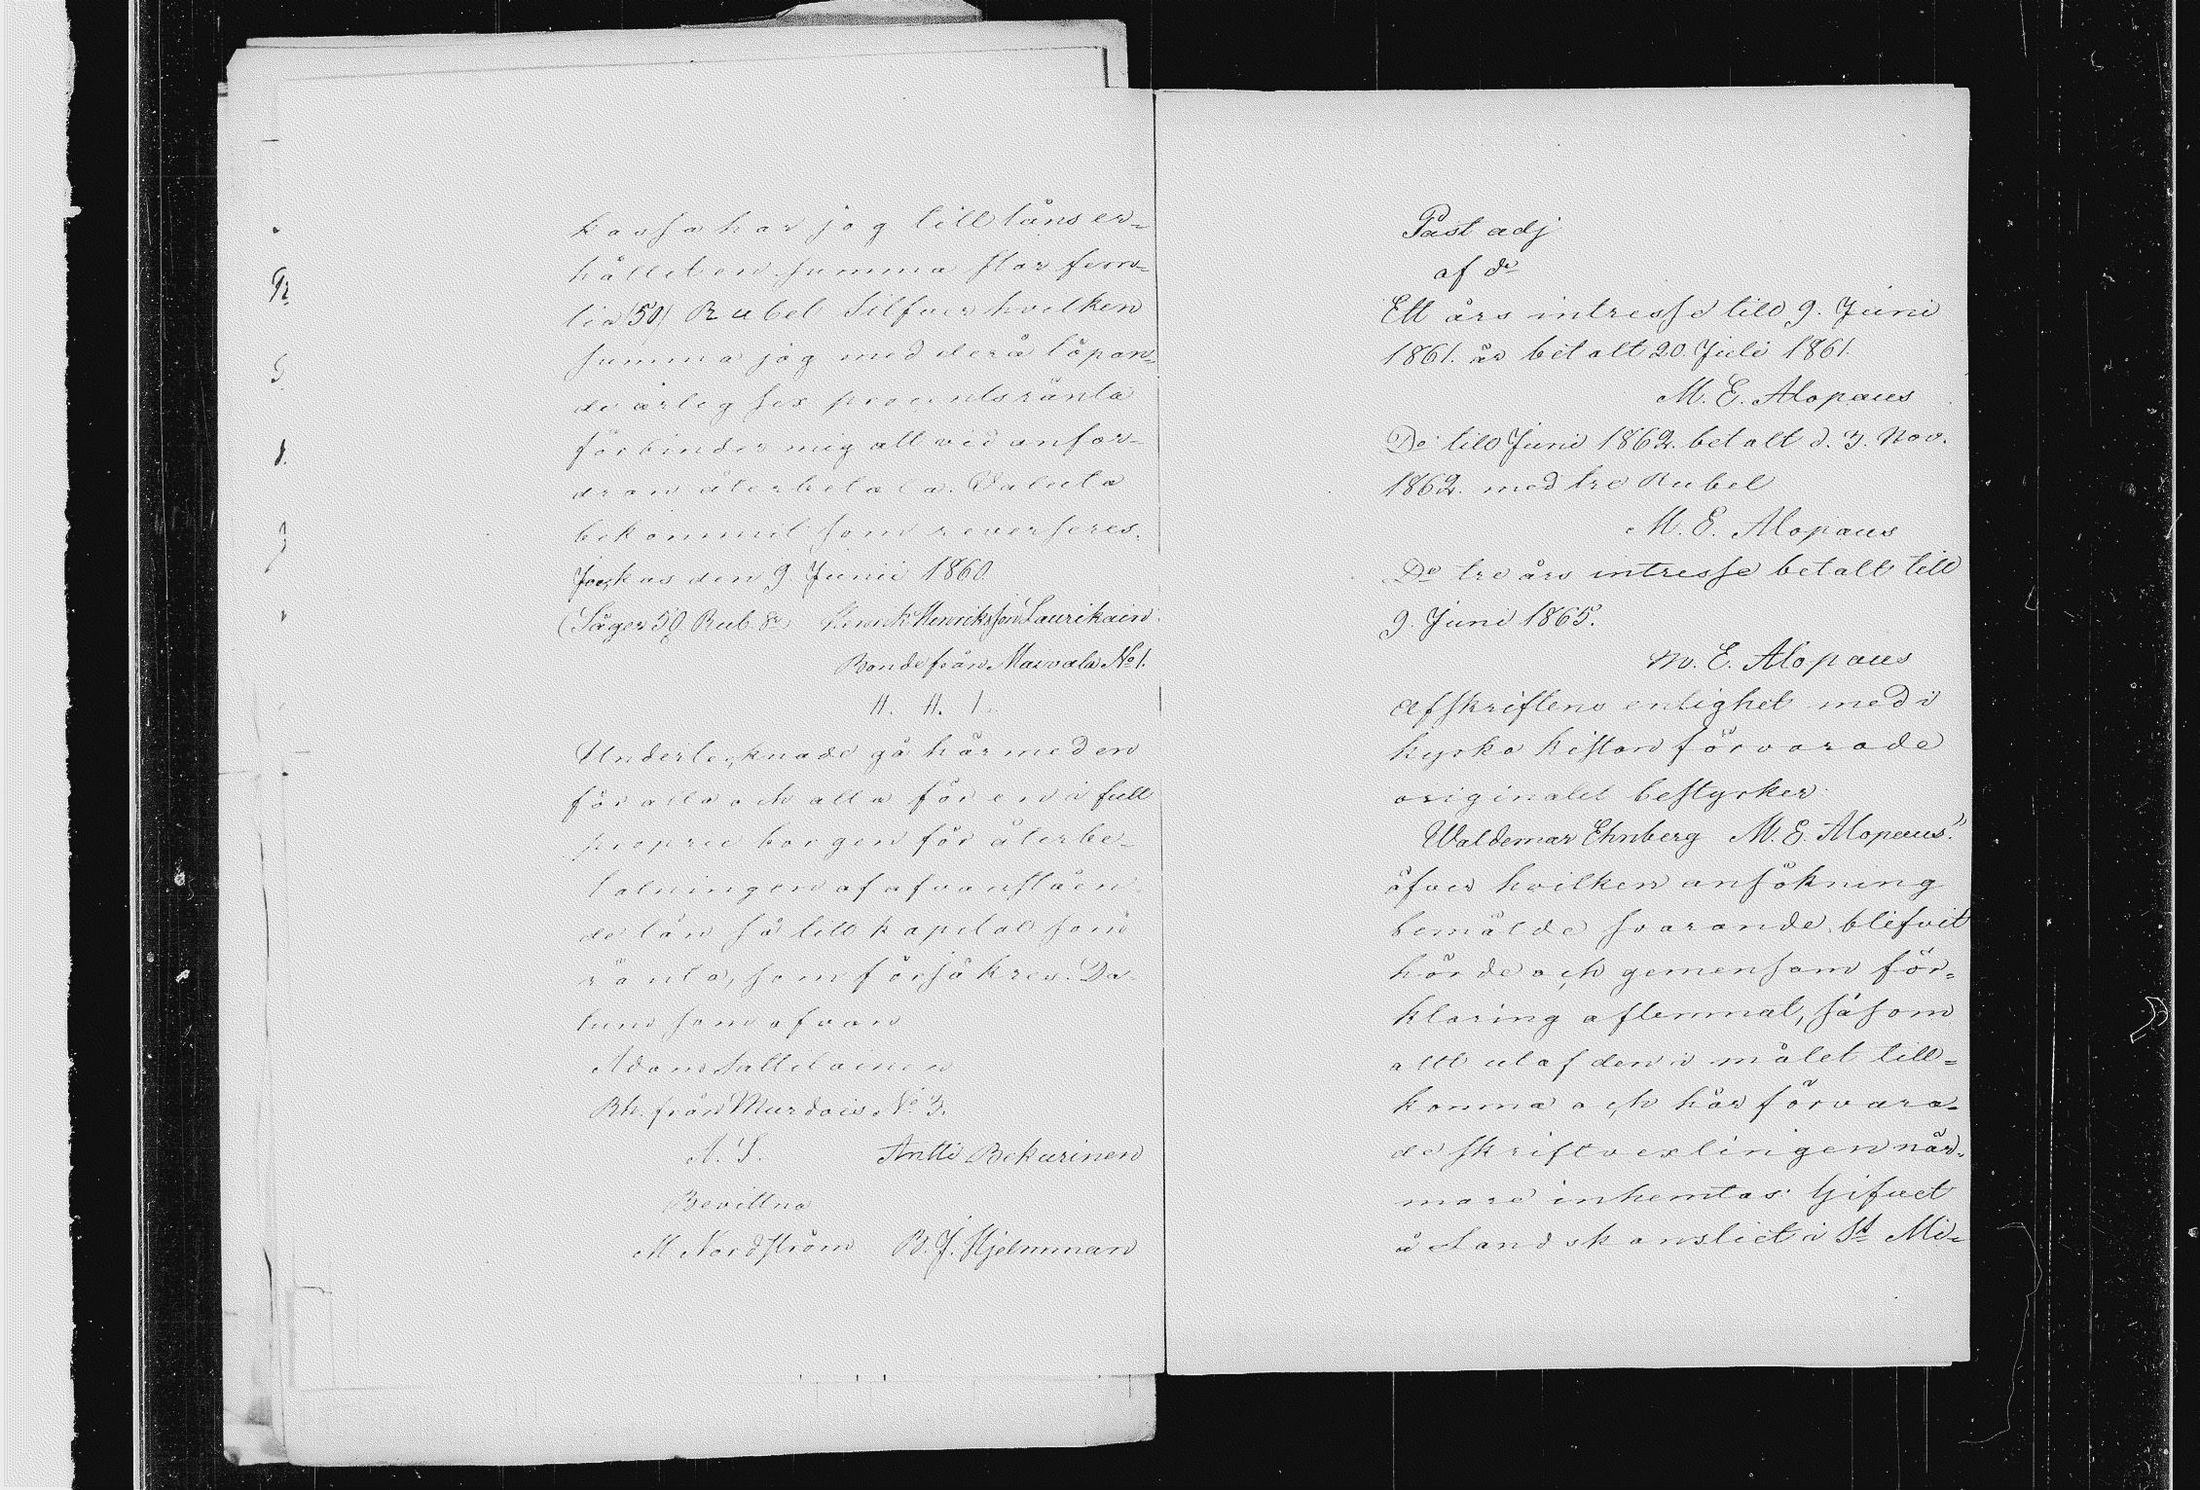 kassa har jag till låns er-
hållit en summa stor fem-
tio (50) Rubel Silfver hvilken
summa jag med derå löpan-
de årlig sex procents ränta
förbinder mig att vid anfor-
dran återbetala. Valuta
bekommit som reverseres.
Jockas den 9 Junii 1860.
(Säger 50 Rub. Sr) Henrik Henriksson Laurikain
Bonde från Maivala No 1.
H. H. L.
Undertecknade gå härmed en
för alla och alla för en i full
proprie borgen för återbe-
talningen af ofvanståen-
de lån så till kapital som
ränta, som försäkres. Da-
tum som ofvan
Adam Sallilainen
Bh. från Murdois No 3.
A. S. Antti Bekurinen
Bevittna
M Nordström B. J. Hjelmman
Past adj
af do
Ett års intresse till 9. Juni
1861. är betalt 20. Juli 1861.
M. E. Alopaeus
Do till Juni 1862. betalt d. 3. Nov.
1862. med tre Rubel
M. E. Alopaeus
Do tre års intresse betalt till
9. Juni 1865.
M. E. Alopaeus
Afskriftens enlighet med i
kyrko kistan förvarade
originalet bestyrker.
Waldemar Ehnberg M. E. Alopaeus."
öfver hvilken ansökning
bemälde svarande blifvit
hörde och gemensam för-
klaring aflemnat, såsom
allt utaf den i målet till-
komna och här förvara-
de skriftvexlingen när-
mare inhemtas. Gifvet
å Landskansliet i St. Mi-